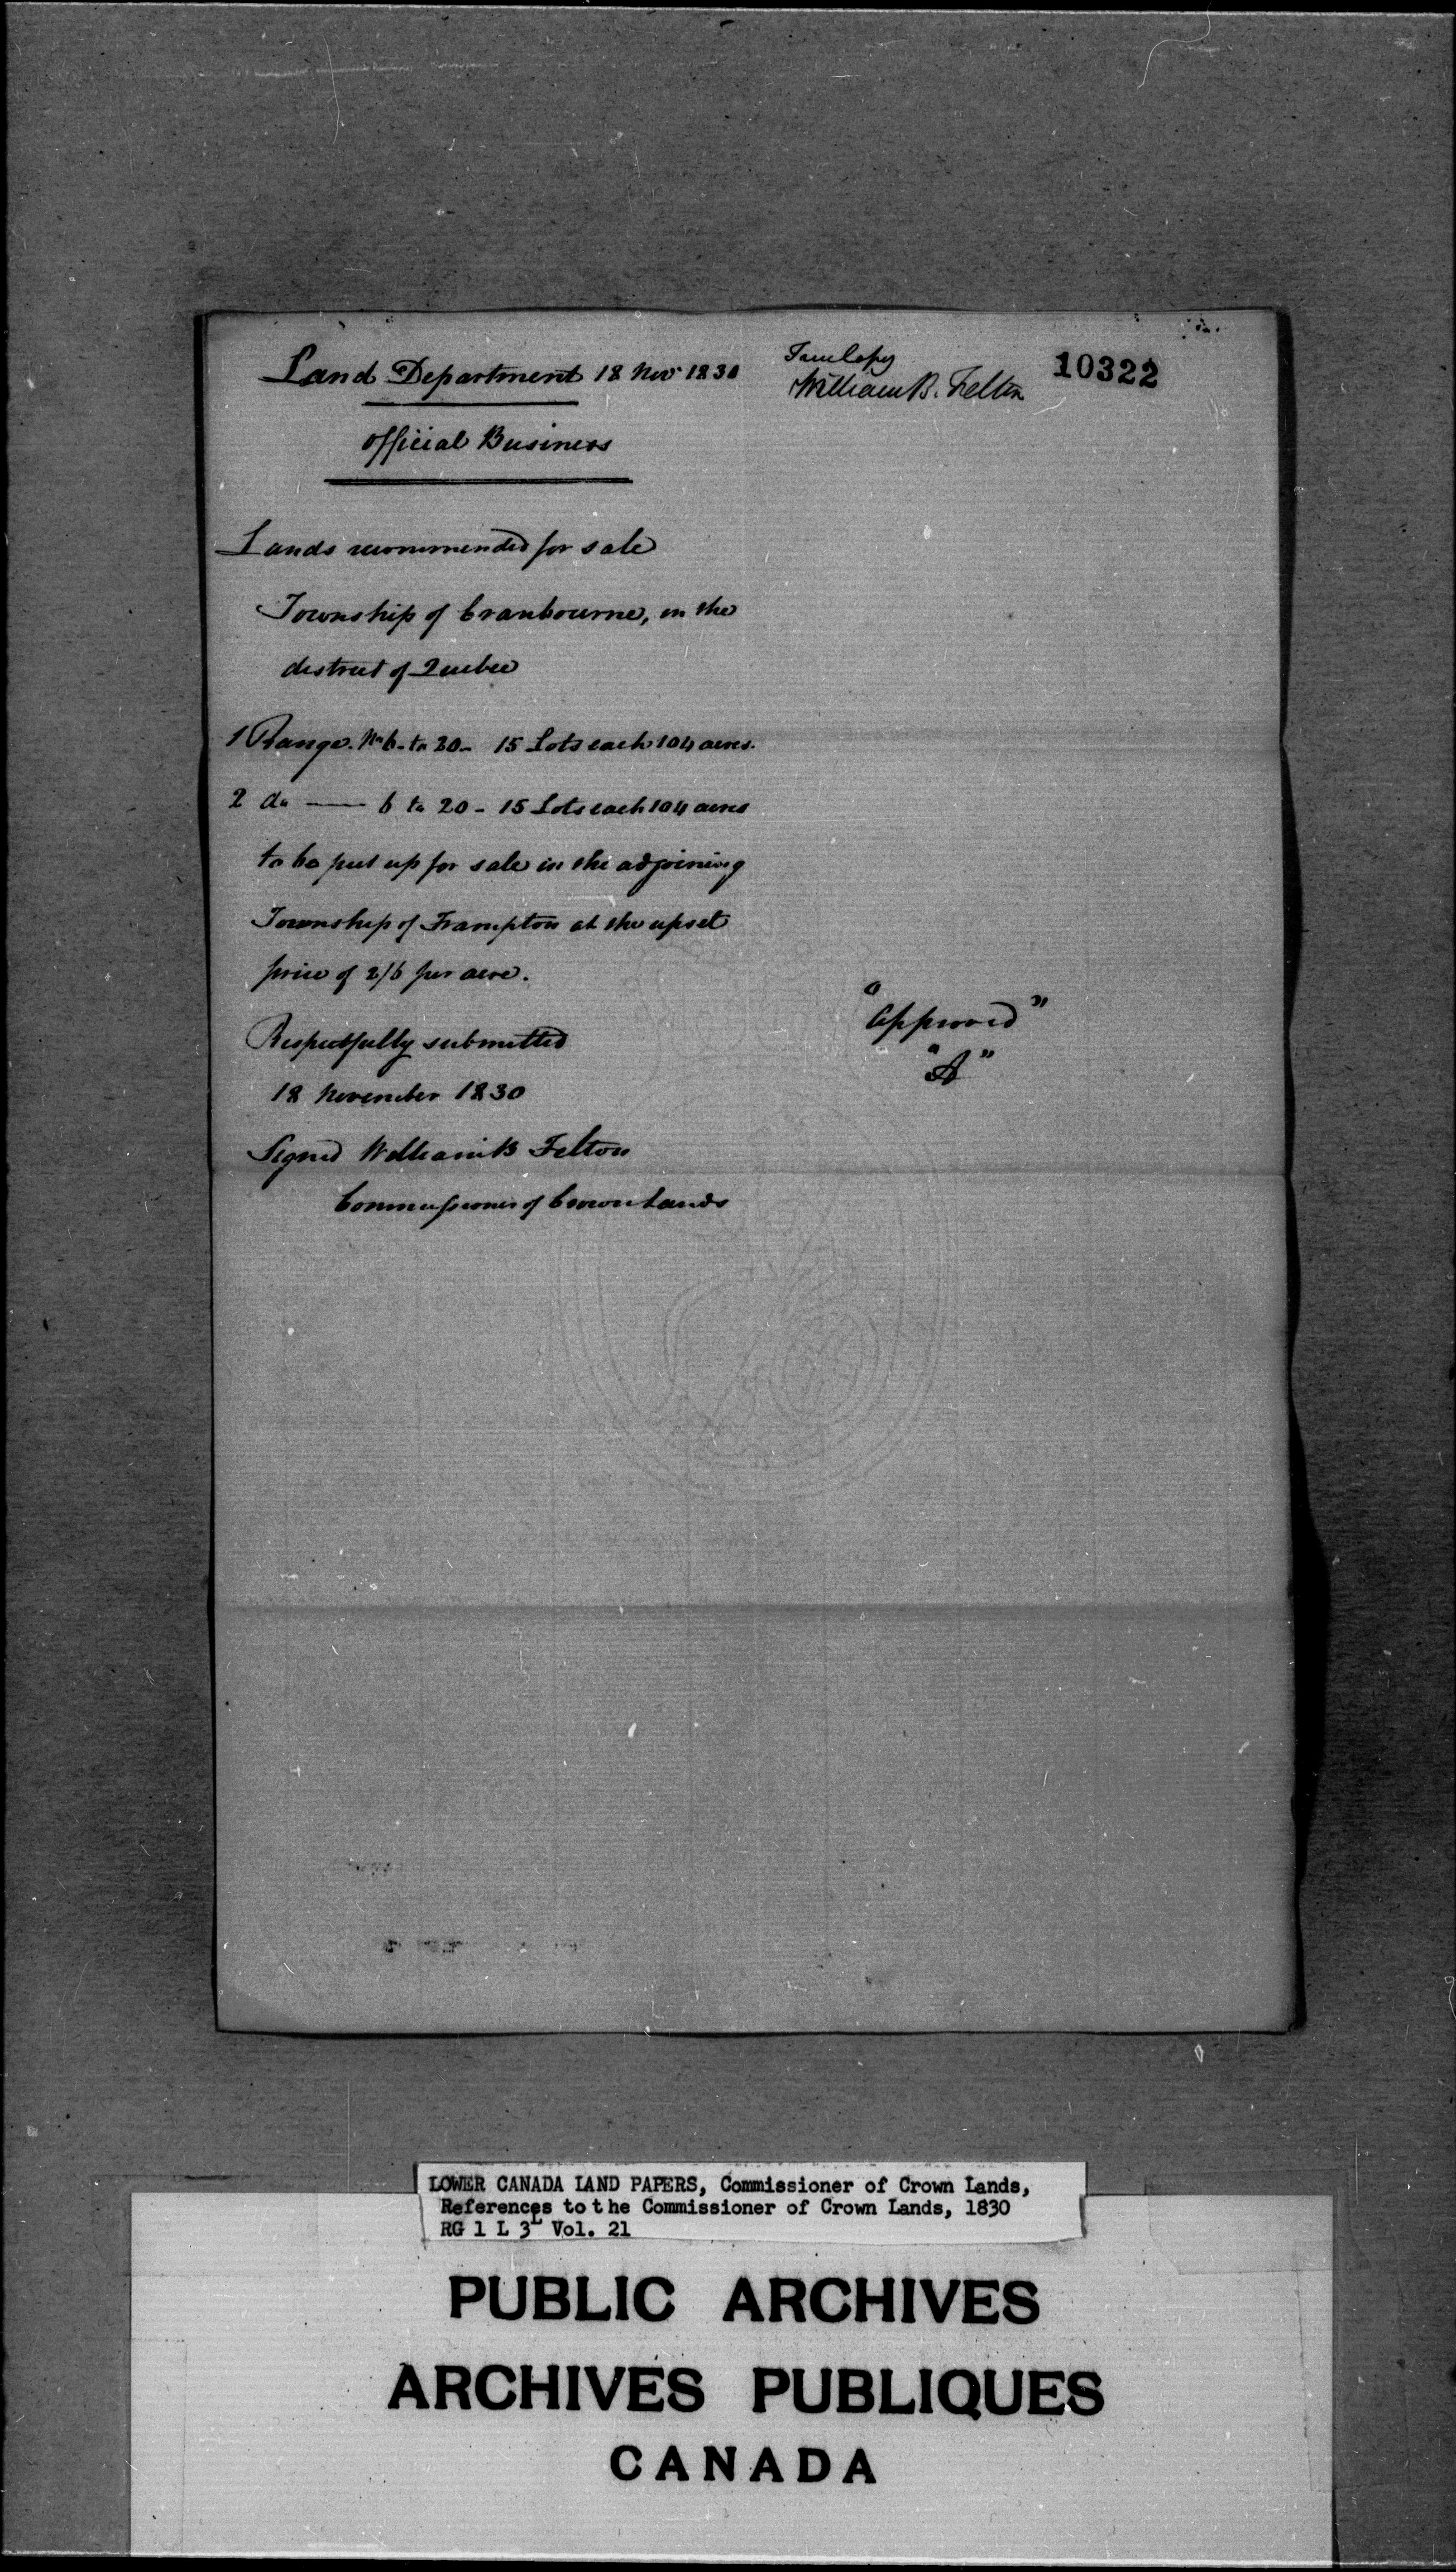 Land Department 18 Nov 1830
Official Business
Lands recommended for sale
Township of Cranbourne, in the
district of Quebec
1 Range. No 6. to 20 - 15 Lots each 104 acres.
2 do —— 6 to 20 - 15 Lots each 104 acres
to be put up for sale in the adjoining
Township of Frampton at the upset
price of 2/6 per acre.
Respectfully submitted
18 November 1830
Signed William B Felton
Commissioner of Crown Lands
True Copy
William B. Felton
10322
"Approved"
"A"
LOWER CANADA LAND PAPERS, Commissioner of Crown Lands,
References to the Commissioner of Crown Lands, 1830
RG 1 L 3L Vol. 21
PUBLIC ARCHIVES
ARCHIVES PUBLIQUES
CANADA